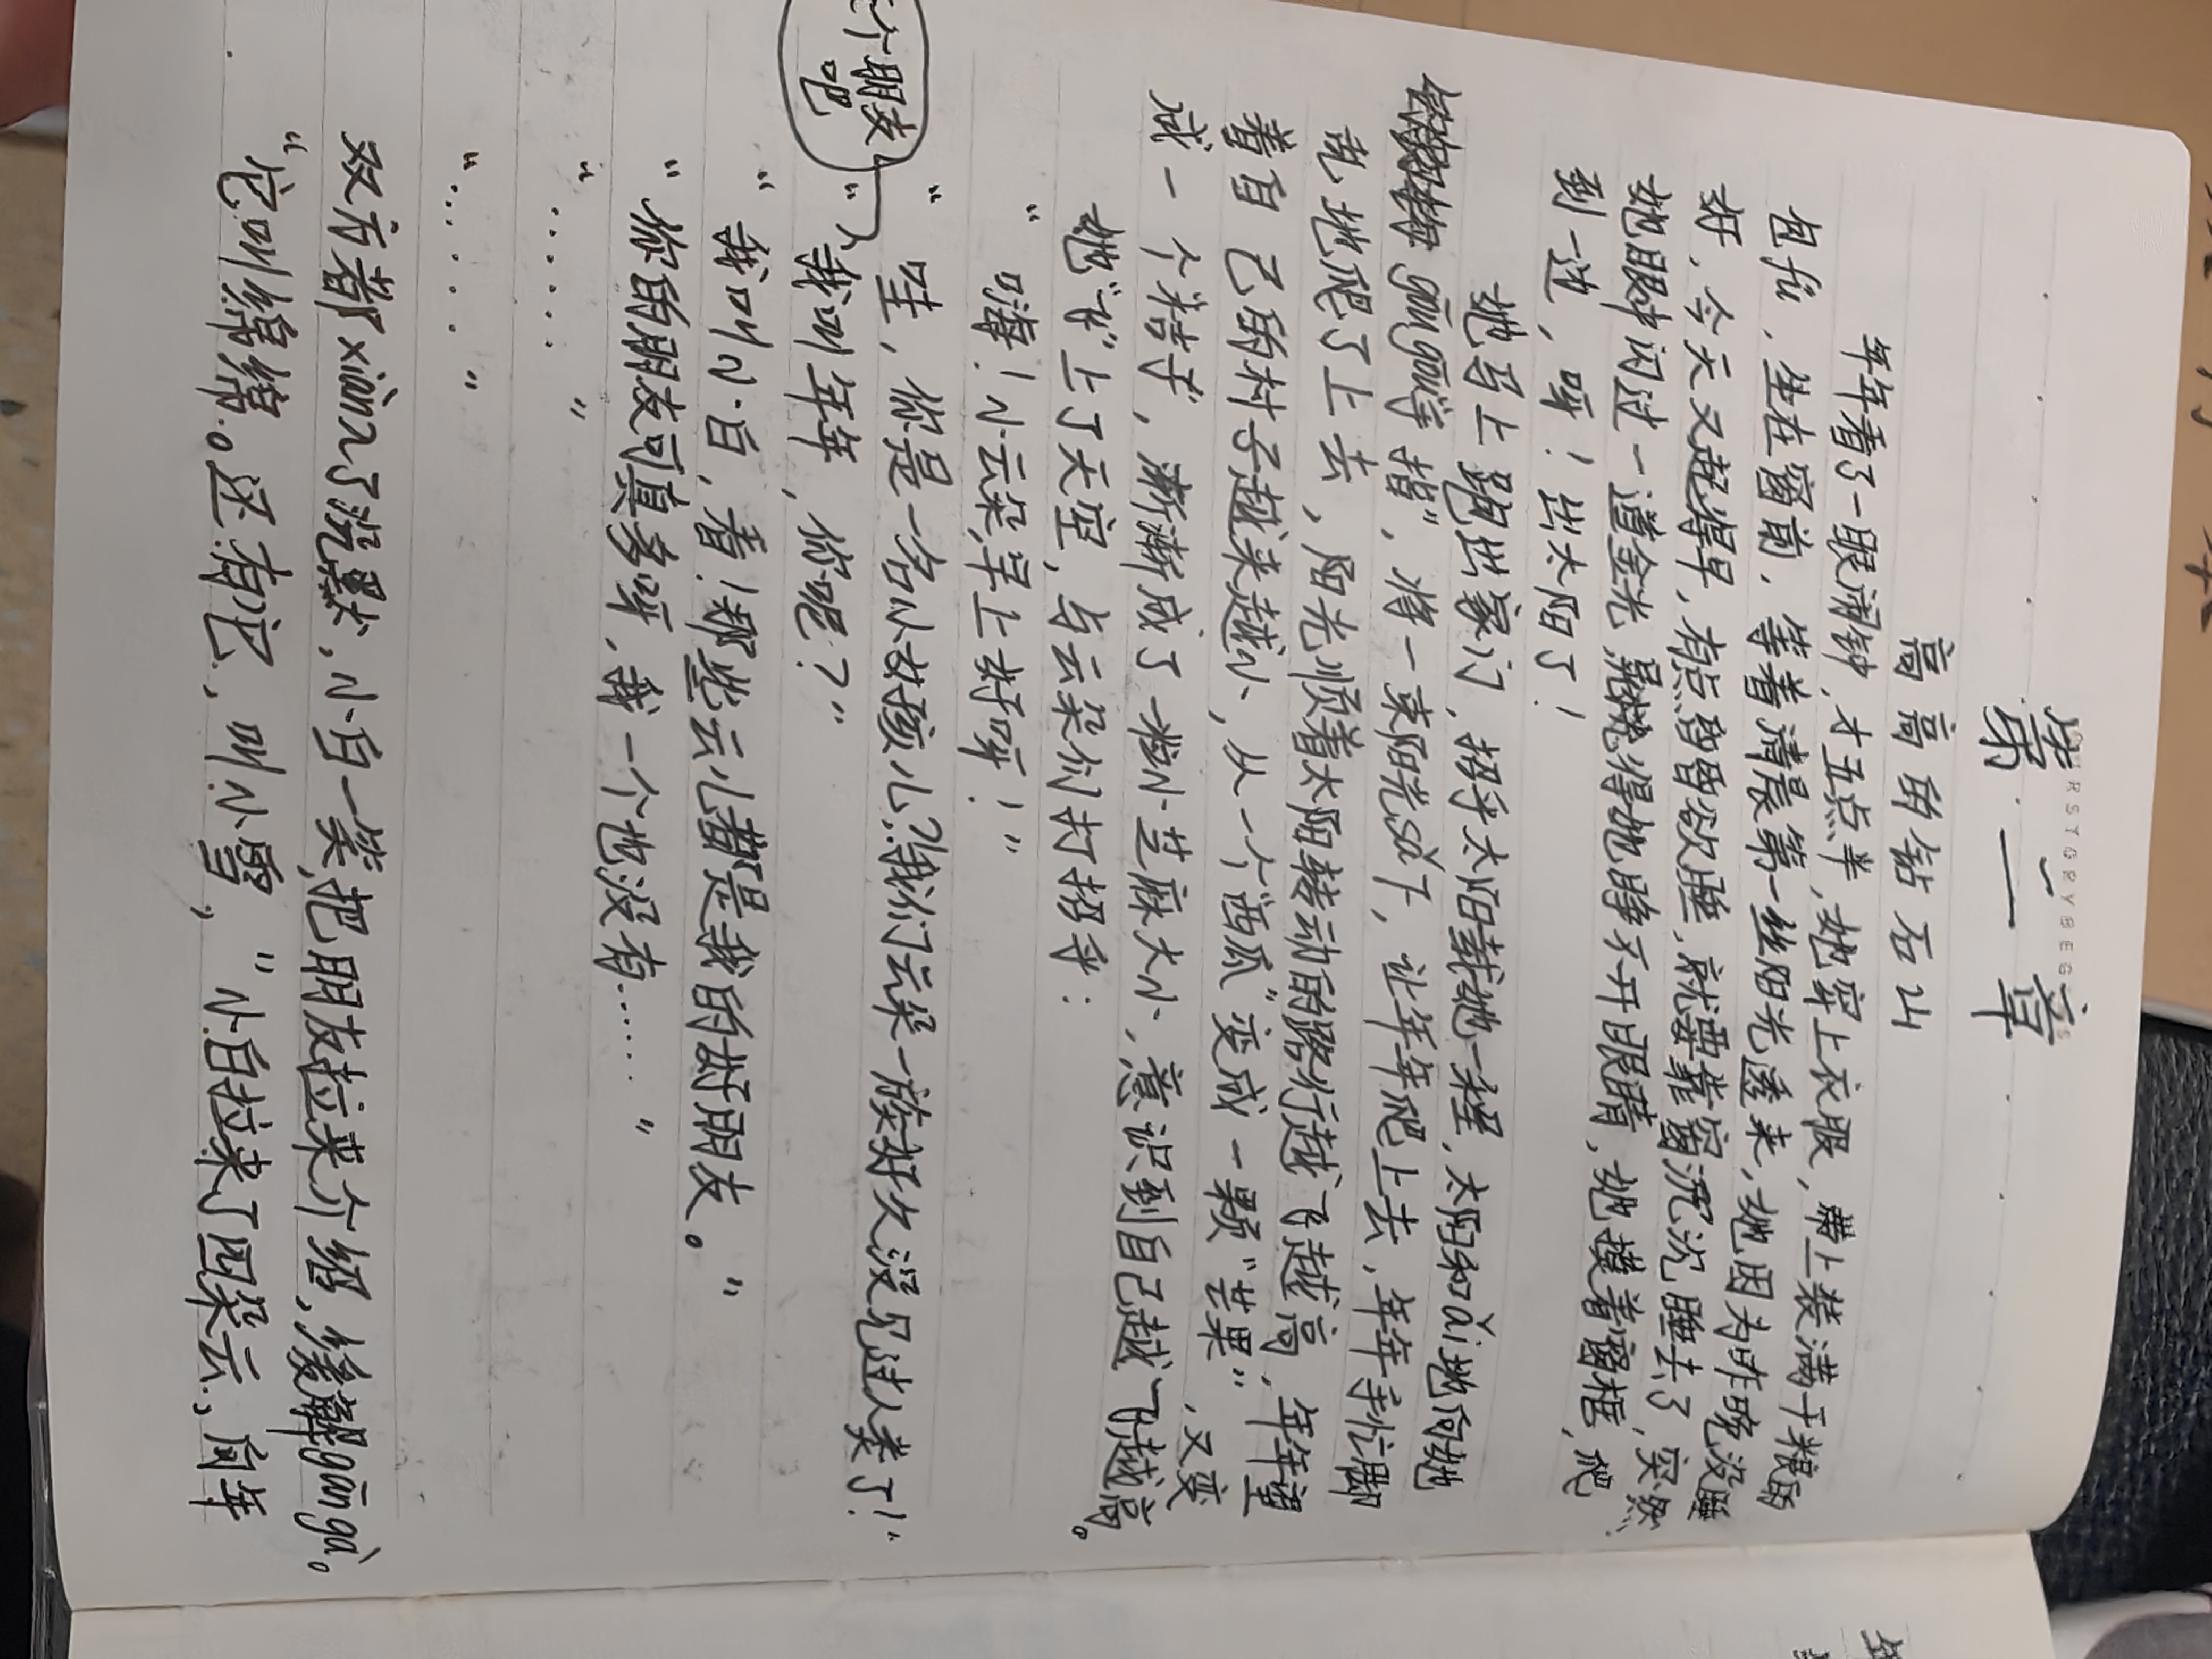 第一章
高高的钻石山
年年看了一眼闹钟，才五点半，她穿上衣服，带上装满干粮的
包fu，坐在窗前，等着清晨第一丝阳光透来，她因为昨晚没睡
好，今天又起得早，有点昏昏欲睡，就要靠窗沉沉睡去了，突然，
她眼中闪过一道金光，晃得她睁不开眼睛，她摸着窗框，爬
到一边，呀！出太阳了！
她马上跑出家门，招乎太阳载她一程，太阳和ǎi地向她
gōu gou手指”，将一束阳光sǎ下，让年年爬上去，年年手忙脚
乱地爬了上去，阳光顺着太阳转动的路行越飞越高，年年望
着自己的村子越来越小，从一个“西瓜”变成一颗“苹果”，又变
成一个桔子”，渐渐成了一粒小芝麻大小，意识到自己越飞越高。
她“飞”上了天空，与云朵们打招乎：
“嗨！小云朵早上好呀！”
“哇，你是一名小女孩儿？我们云朵一族好久没见过人类了！”
个朋友吧
“我叫年年，你呢？”
“我叫小白，看！那些云儿都是我的好朋友。”
“你的朋友可真多呀，我一个也没有……”
“……”
“……”
双方都xiàn入了沉默，小白一笑，把朋友拉来介绍，缓解gān gà。
“它叫绵绵。还有它，叫小雪，”小白拉来了四朵云，向年